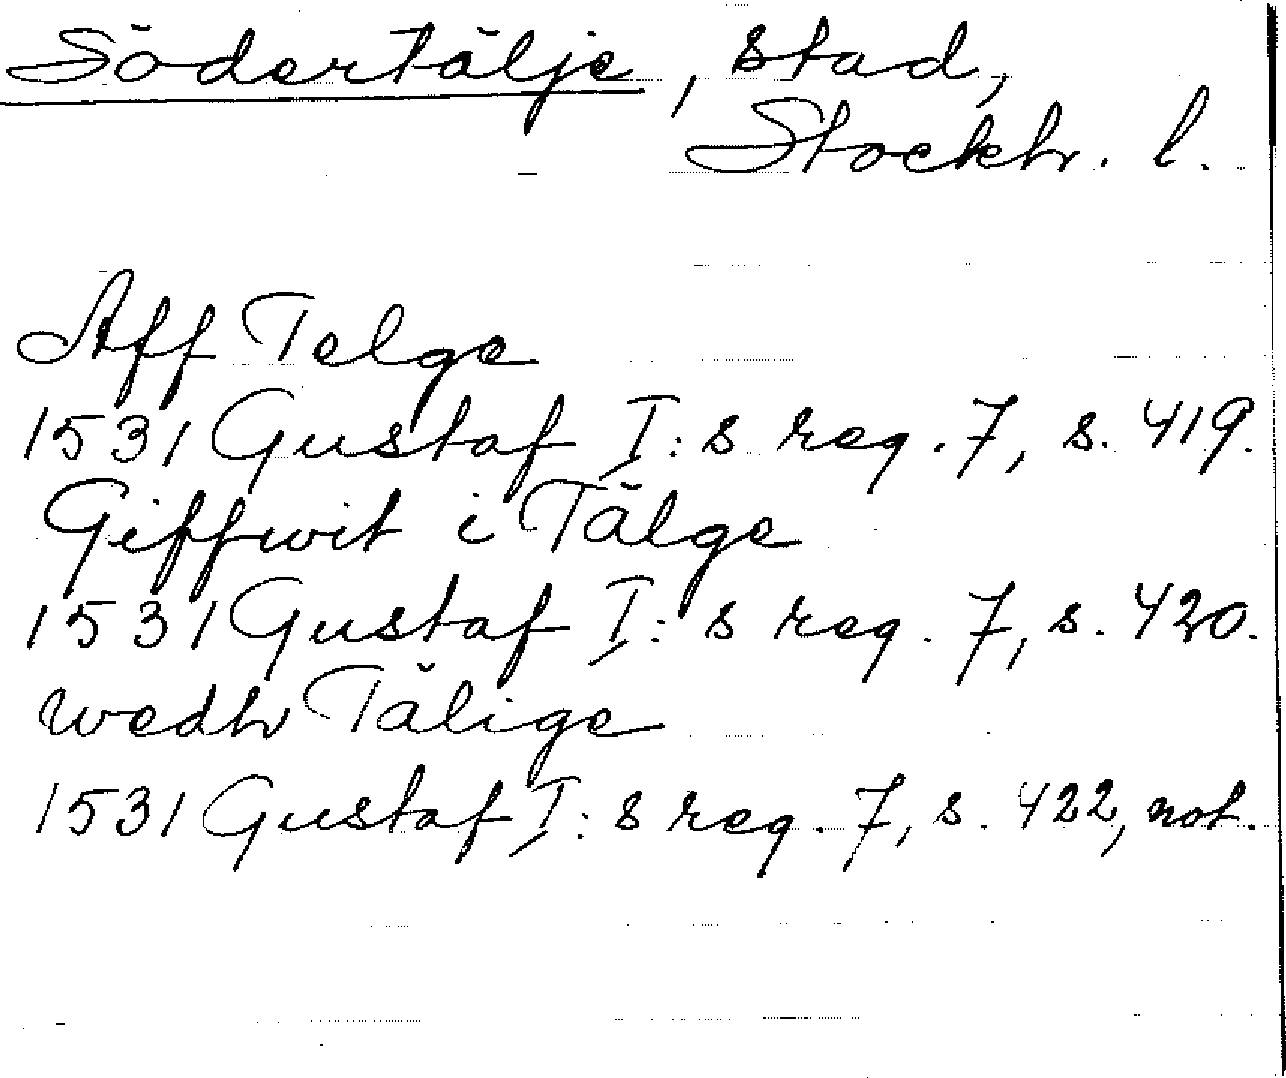 Södertälje, stad,
Stockh. l.
Aff Telge
1531 Gustaf I:s reg. 7, s. 419.
Giffwit i Tälge
1531 Gustaf I:s reg. 7, s. 420.
wedh Tälige
1531 Gustaf I:s reg. 7, s. 422, not.